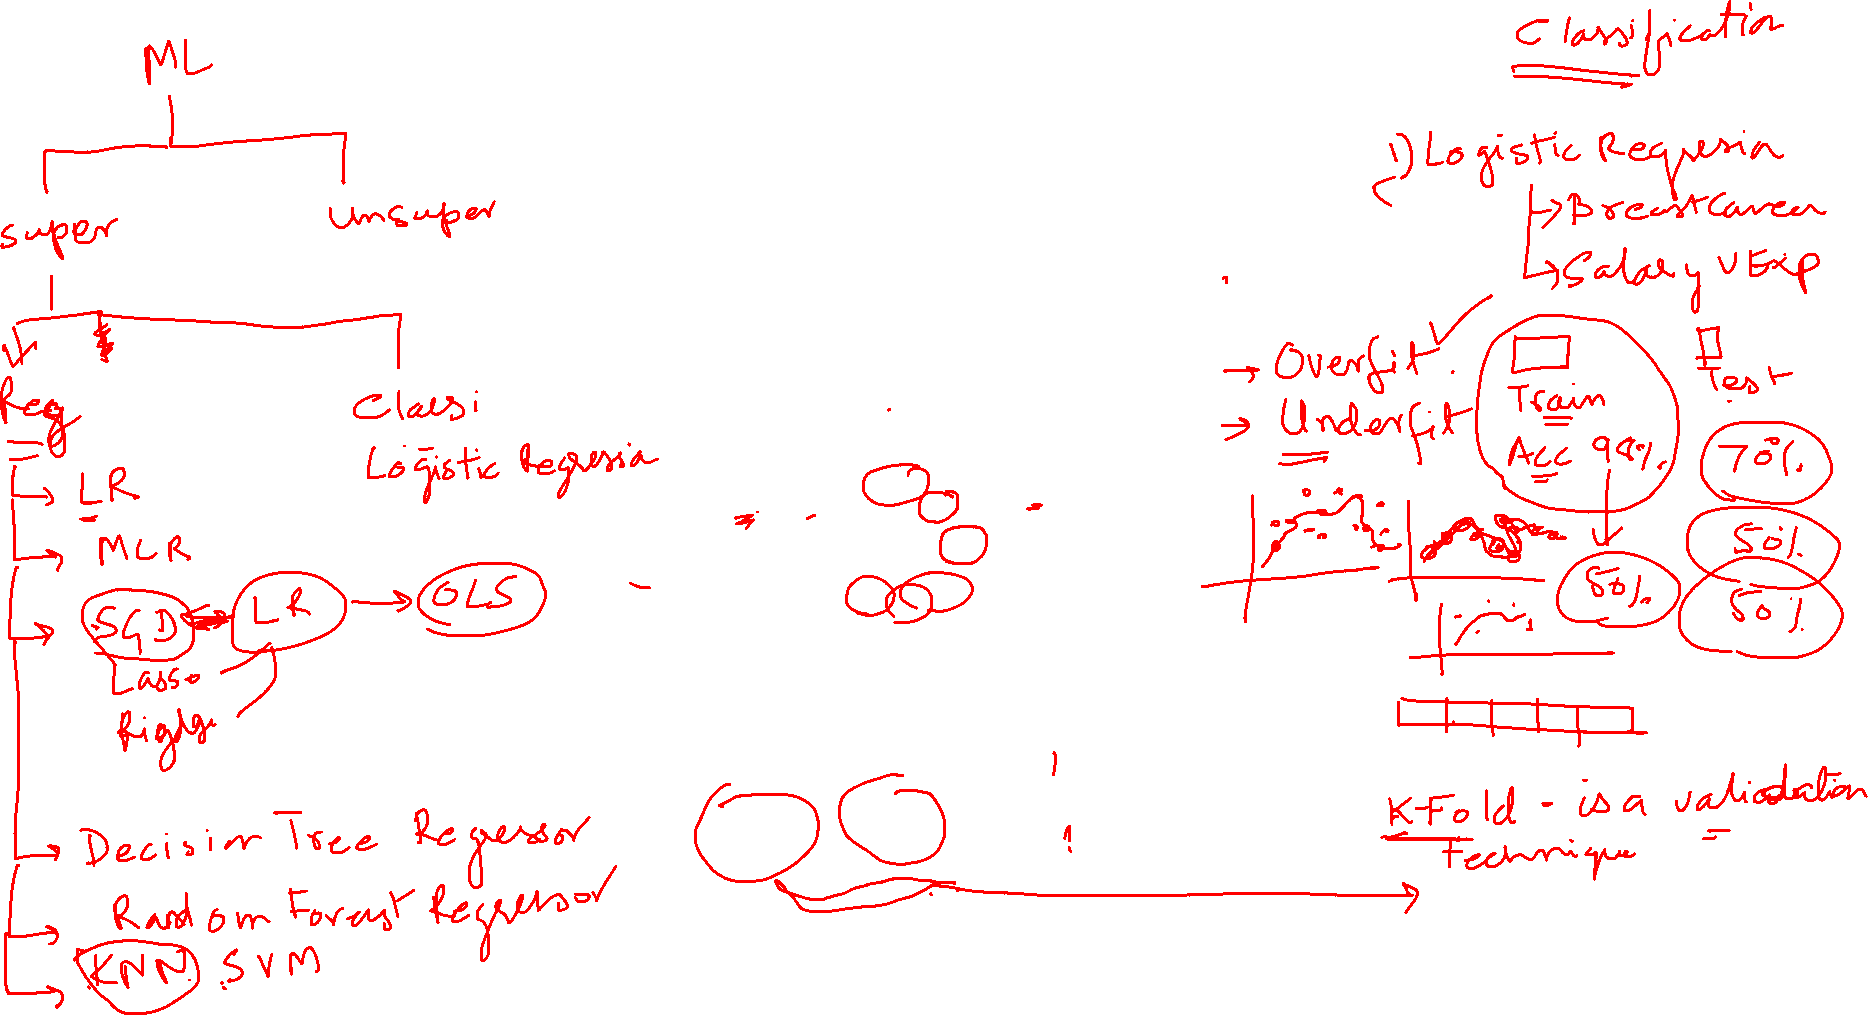 ML
super
unsuper
Reg
Classi
Logistic Regressia
LR
MLR
SGD LR OLS
Lasso
Rigdge
Decision Tree Regressor
Random Forest Regressor
KNN SVM
Classification
1) Logistic Regression
Salary V Exp
Overfit
Underfit
Train
Acc 98%
Test
70%
50%
50%
50%
K-Fold - is a validation
Technique